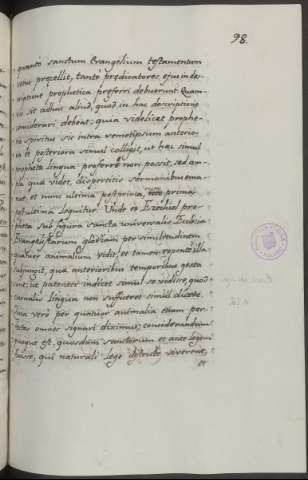 98.
quanto sanctum Evangelium testamentum
vetus præcellit, tanto prædicatores ejus in de-
scriptione prophetica præferri debuerunt. Quam-
vis sit adhuc aliud, quod in hac descriptione
considerari debeat: quia videlicet prophe-
tiæ spiritus sic intra semetipsum anterio-
ra et posteriora simul colligit, ut hæc simul
prophetæ lingua proferre non possit, sed am-
pla quæ videt, dispertitis sermonibus ema-
nat, et nunc ultima post prima, prima
post ultima loquitur. Unde et Ezechiel pro-
pheta sub figura sancta universalis Ecclesiæ
Evangelistarum gloriam per similitudinem
quatuor animalium vidit, et tamen repente illa
subjungit, quæ anterioribus temporibus gesta
sunt, ut patenter indicet simul se vidisse, quod
carnalis lingua non sufficeret simul dicere.
Quia vero per quatuor animalia etiam per-
fectos omnes signari diximus, considerandum
magno est, quosdam sanctorum et ante legem
fuisse, qui naturali lege viverent,
et